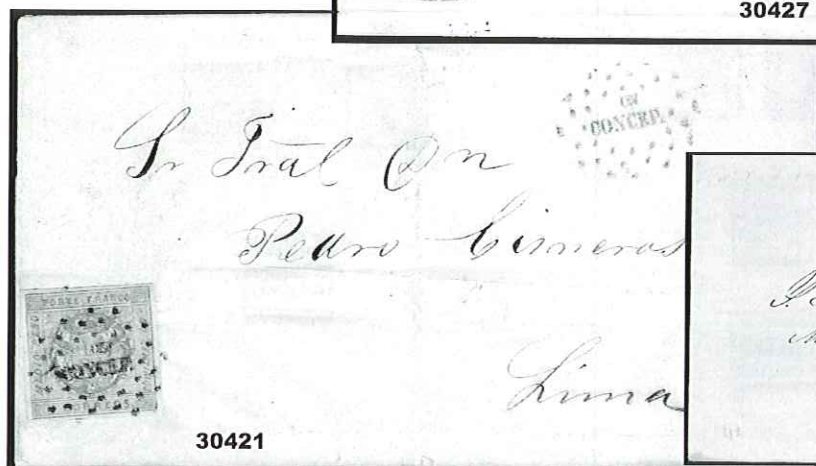 30427
CONCEP.
Sr Gral Dn
Pedro Cisneros
Lima
PORTE FRANCO
CONCEP.
30421